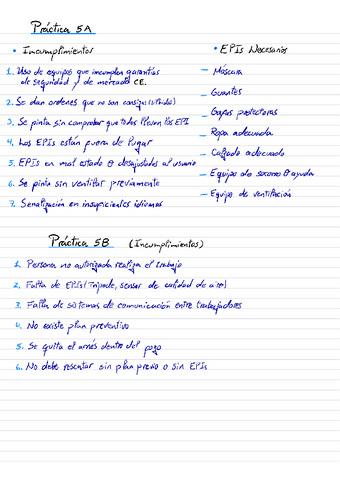 Práctica 5A
• Incumplimientos
1. Uso de equipos que incumplen garantías
de seguridad y de mercado CE.
2. Se dan ordenes que no son consigu
3. Se pinta sin comprobar que todos lleven los EPI
4. Los EPIs están fuera de lugar
5. EPIs en mal estado o desajustados al usuario
6. Se pinta sin ventilar previamente
7. Senalización en insuficientes idiomas
• EPIs Necesarios
– Máscara
– Guantes
– Gafas protectoras
– Ropa adecuada
– Calzado adecuado
– Equipo de socorro o ayuda
– Equipo de ventilación
Práctica 5B (Incumplimientos)
1. Persona no autorizada realiza el trabajo
2. Falta de EPIs (Trípode, sensor de calidad de aire)
3. Falta de sistemas de comunicación entre trabajadores
4. No existe plan preventivo
5. Se quita el arnés dentro del pozo
6. No debe rescatar sin plan previo o sin EPIs